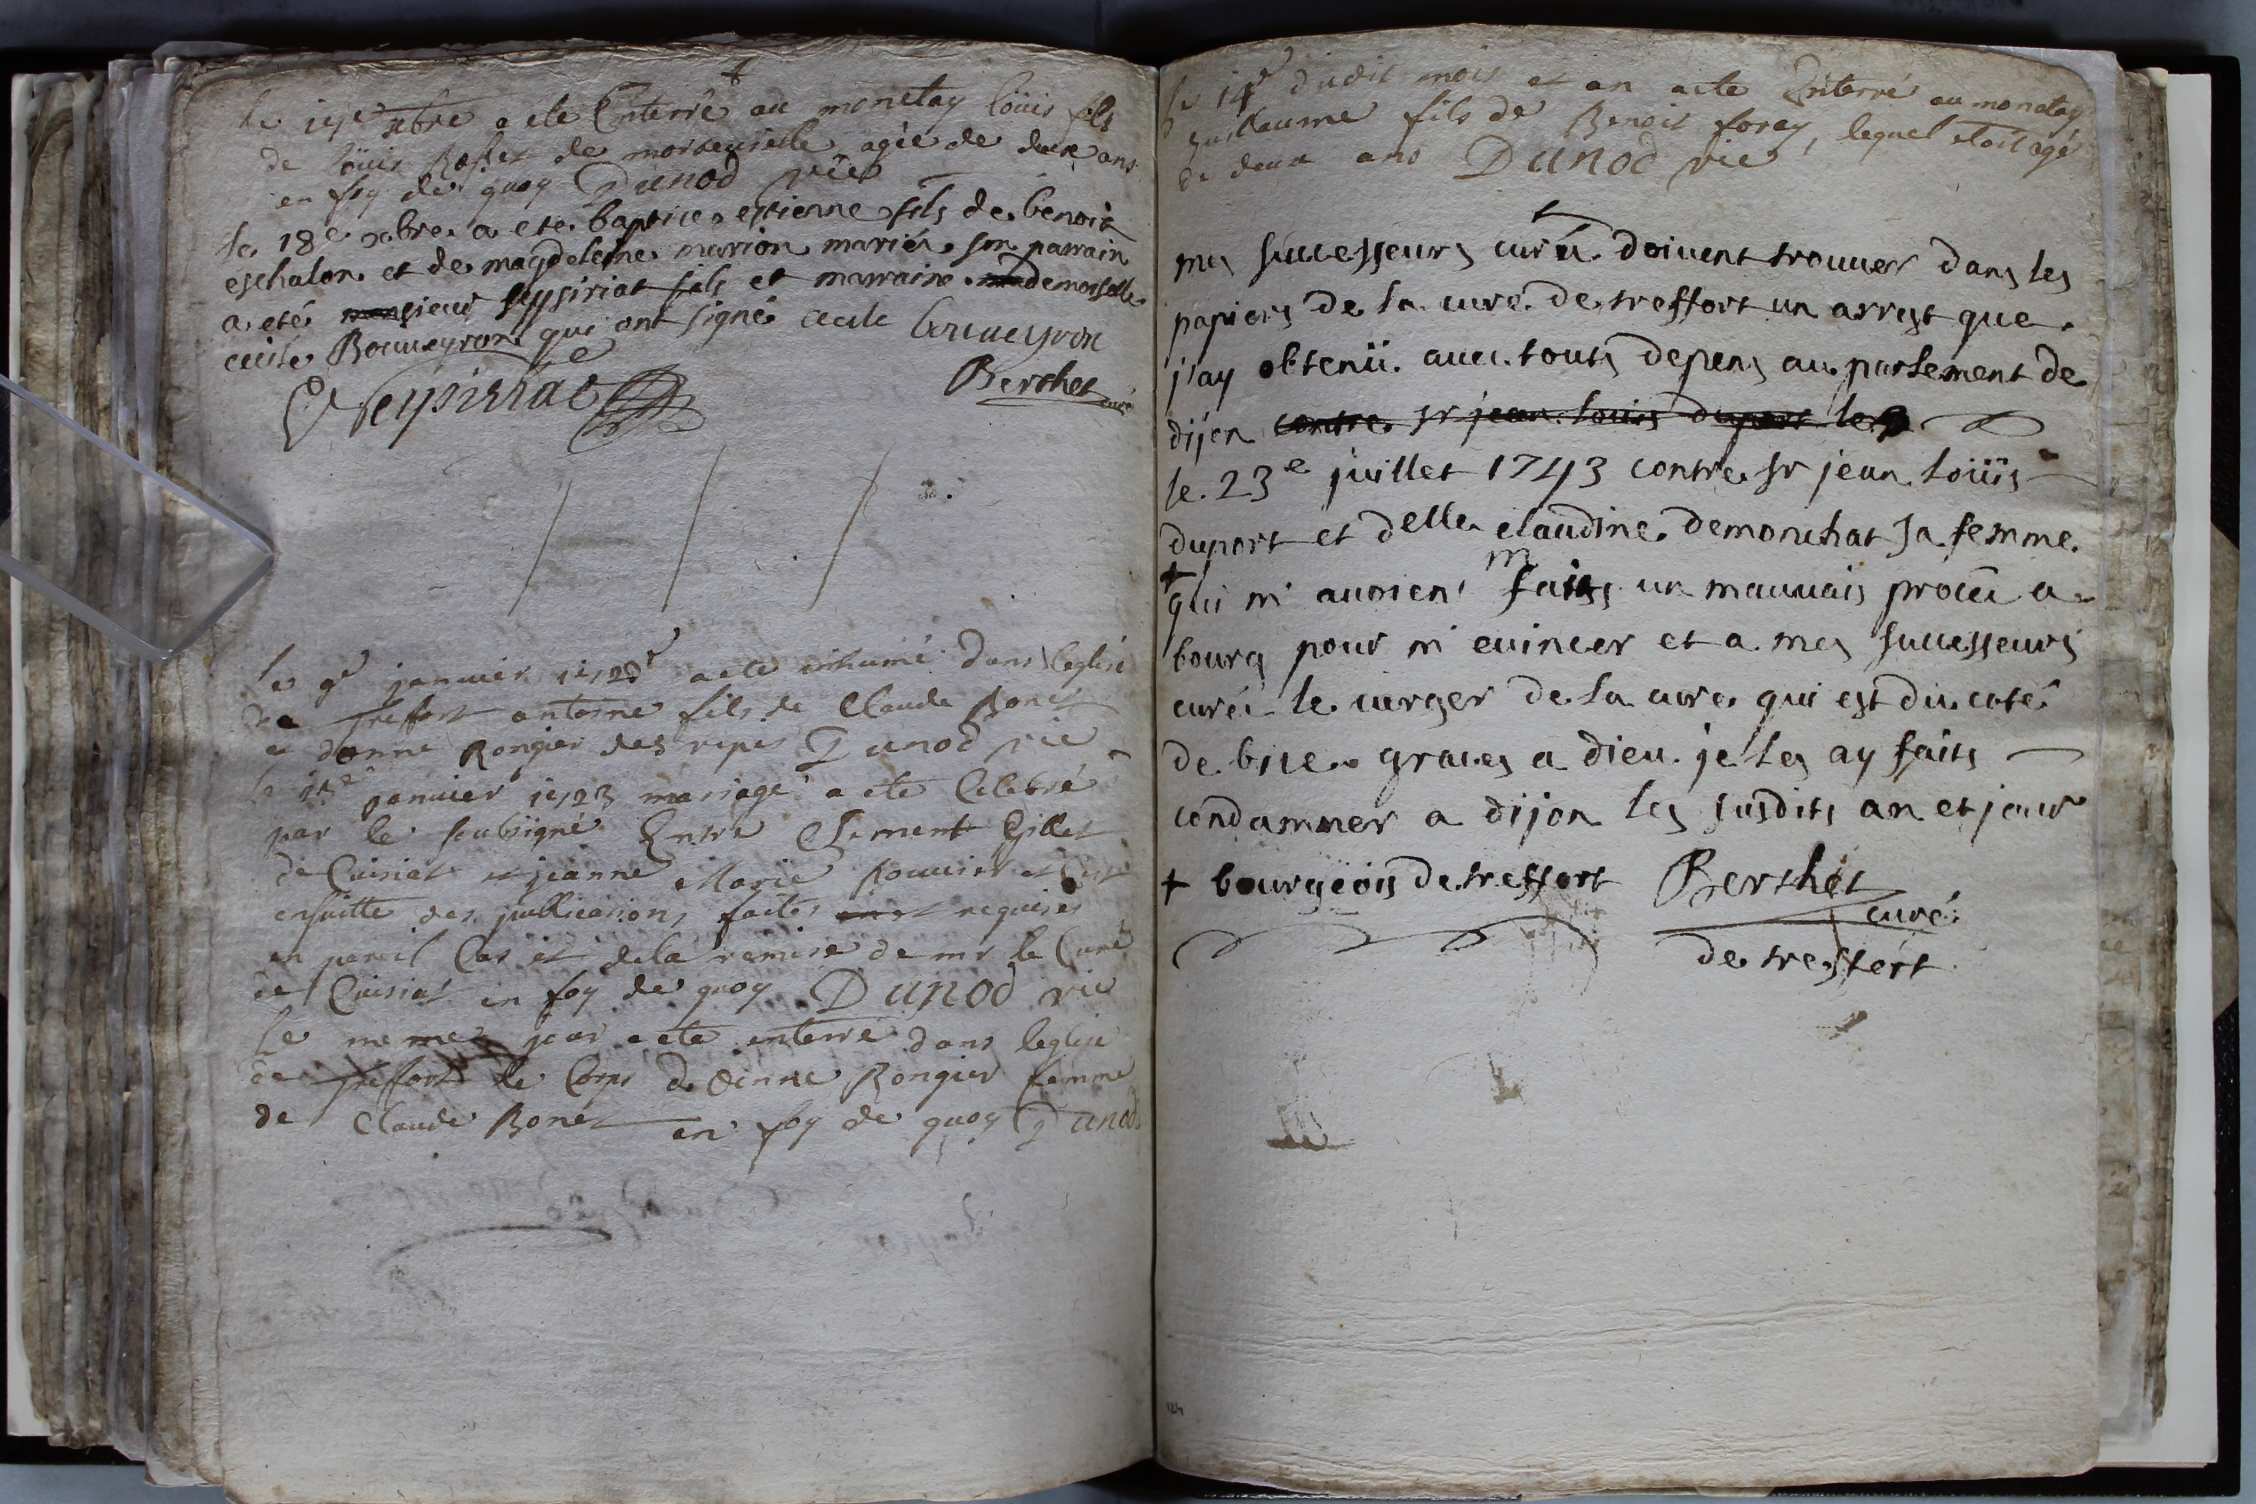 Le 17e xbre a ete Enterré au monetay loüis fils
de loüis de agée de deux ans
en foy de quoy Dunod vic
le 18e xbre a ete baptisé estienne fils de benoit
eschalon et de magdeleine marion mariés son parrain
a eté monsieur seyssiriat fils et marraine demoiselle
cecile Bouveyron qui ont signé cecile bouveyron
Seyssiriat Berthet curé
Le 9e janvier 1723 a ete inhumé dans leglise
de treffort antoine fils de Claude Bonet
e danne Rongier des ripes Dunod vic
le janvier 1723 mariage a ete Celebré
par le soubsigné Entre Clement Gillet
de Cuisiat et jeanne Marie Rouvier et
ensuitte des publications faites requises
en pareil Cas et de la remise de mr le Curé
de Cuisiat en foy de quoy Dunod vic
Le meme jour a ete enterré dans leglise
de treffort le Corps de Rongier femme
de Claude Bonet en foy de quoy Dunod
Le 14e dudit mois et an a ete Enterré au monetay
guillaume fils de Benoit foray, lequel etoit agé
de deux ans Dunod vic
mes successeurs curés doivent trouver dans les
papiers de la cure de treffort un arrest que
j'ay obtenü avec touts depens au parlement de
dijon contre sr jean louis duport le
le 23e juillet 1743 contre sr jean loüis
duport et delle claudine demonchat sa femme
+ qui m'avoient faits un mauvais procés a
bourg pour m'evincer et a mes successeurs
curés le verger de la cure qui est du coté
de bise graces a dieu je les ay faits
condamner a dijon les susdits an et jour
+ bourgeois de treffort Berthet
curé
de treffort